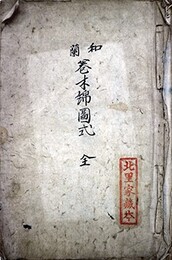 和
蘭
巻木綿圖式 全
北里家藏本